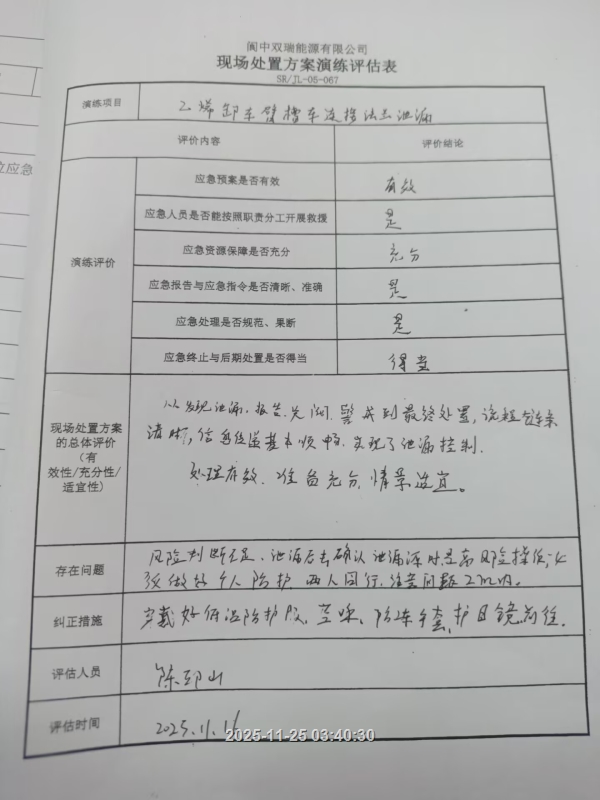 阆中双瑞能源有限公司
现场处置方案演练评估表
SR/JL-05-067
演练项目 乙烯卸车臂槽车连接法兰泄漏
评价内容 评价结论
演练评价
应急预案是否有效 有效
应急人员是否能按照职责分工开展救援 是
应急资源保障是否充分 充分
应急报告与应急指令是否清晰、准确 是
应急处理是否规范、果断 是
应急终止与后期处置是否得当 得当
现场处置方案
的总体评价
（有
效性/充分性/
适宜性）
从发现泄漏、报告、先期、警戒到最终处置，流程链条
清晰，信息传递基本顺畅，实现了泄漏控制。
处理有效、准备充分、情景适宜。
存在问题
风险判断不足、泄漏后去确认泄漏源时是高风险操作，必
须做好个人防护，两人同行，
纠正措施 穿戴好低温防护服、面罩、防冻手套、护目镜前往。
评估人员
评估时间 2025.11.16
2025-11-25 03:40:30